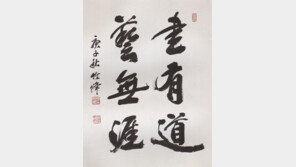 書有道
藝無涯
庚子秋